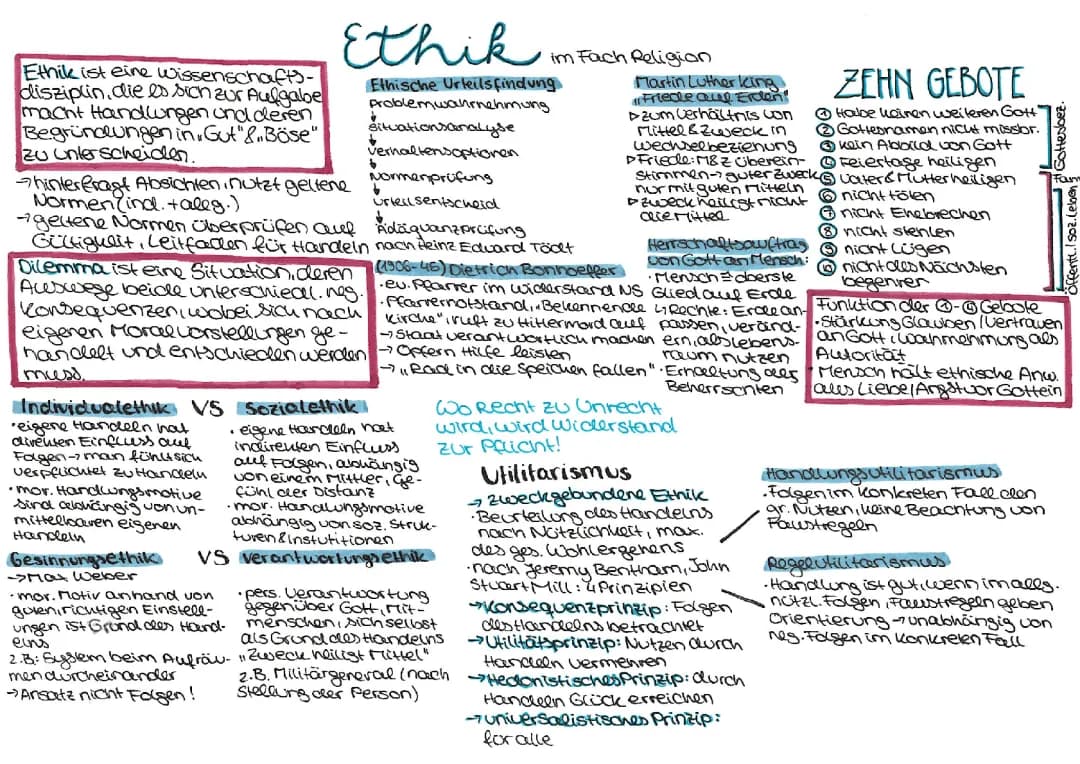 Ethik im Fach Religion
Ethik ist eine Wissenschafts-
disziplin, die es sich zur Aufgabe
macht Handlungen und deren
Begründungen in „Gut" & „Böse"
zu unterscheiden.
→ hinterfragt Absichten, nutzt geltene
Normen (ind. + allg.)
→ geltene Normen überprüfen auf
Gültigkeit, Leitfaden für Handeln
Dilemma ist eine Situation, deren
Auswege beide unterschiedl. neg.
Konsequenzen, wobei sich nach
eigenen Moralvorstellungen ge-
handelt und entschieden werden
muss.
Ethische Urteilsfindung
Problemwahrnehmung
↓
Situationsanalyse
↓
Verhaltensoptionen
↓
Normenprüfung
↓
Urteilsentscheid
↓
Adäquanzprüfung
nach Heinz Eduard Tödt
(1906-45) Dietrich Bonhoeffer
· ev. Pfarrer im Widerstand NS
· Pfarrernotstand, „Bekennende
Kirche", ruft zu Hitlermord auf
→ Staat verantwortlich machen
→ Opfern Hilfe leisten
→ „Rad in die Speichen fallen"
Martin Luther King
„Friede auf Erden"
▷ zum Verhältnis von
Mittel & Zweck in
Wechselbeziehung
▷ Friede: M & Z überein-
stimmen → guter Zweck
nur mit guten Mitteln
▷ Zweck heiligt nicht
die Mittel
Herrschaftsauftrag
von Gott an Mensch:
· Mensch ≙ oberste
Glied auf Erde
↳ Rechte: Erde an-
passen, veränd-
ern, als Lebens-
raum nutzen
· Erhaltung des
Beherrschten
ZEHN GEBOTE
① Habe keinen weiteren Gott
② Gottesnamen nicht missbr.
③ kein Abbild von Gott
④ Feiertage heiligen
⑤ Vater & Mutter heiligen
⑥ nicht töten
⑦ nicht Ehebrechen
⑧ nicht stehlen
⑨ nicht Lügen
⑩ nicht des Nächsten
begehren
Fam
öffentl. / soz. Leben
Funktion der ①-④ Gebote
· Stärkung Glauben / Vertrauen
an Gott, Wahrnehmung als
Autorität
· Mensch hält ethische Anw.
aus Liebe / Angst vor Gott ein
Individualethik VS Sozialethik
· eigene Handeln hat
direkten Einfluss auf
Folgen → man fühlt sich
verpflichtet zu Handeln
· mor. Handlungsmotive
sind abhängig von un-
mittelbaren eigenen
Handeln
· eigene Handeln hat
indirekten Einfluss
auf Folgen, abhängig
von einem Mittler, Ge-
fühl der Distanz
· mor. Handlungsmotive
abhängig von soz. Struk-
turen & Instutitionen
Gesinnungsethik VS Verantwortungsethik
→ Max Weber
· mor. Motiv anhand von
guten, richtigen Einstell-
ungen ist Grund des Hand-
elns
z.B: System beim Aufräu-
men durcheinander
→ Ansatz nicht Folgen!
· pers. Verantwortung
gegenüber Gott, Mit-
menschen, sich selbst
als Grund des Handelns
„Zweck heiligt Mittel"
z.B. Militärgeneral (nach
Stellung der Person)
Wo Recht zu Unrecht
wird, wird Widerstand
zur Pflicht!
Utilitarismus
→ zweckgebundene Ethik
· Beurteilung des Handelns
nach Nützlichkeit, max.
des ges. Wohlergehens
· nach Jeremy Bentham, John
Stuart Mill: 4 Prinzipien
→ Konsequenzprinzip: Folgen
des Handelns betrachtet
→ Utilitätsprinzip: Nutzen durch
Handeln vermehren
→ Hedonistisches Prinzip: durch
Handeln Glück erreichen
→ universalistisches Prinzip:
für alle
Handlungsutilitarismus
· Folgen im konkreten Fall den
gr. Nutzen, keine Beachtung von
Faustregeln
Regelutilitarismus
· Handlung ist gut, wenn im allg.
nützl. Folgen, Faustregeln geben
Orientierung → unabhängig von
neg. Folgen im konkreten Fall